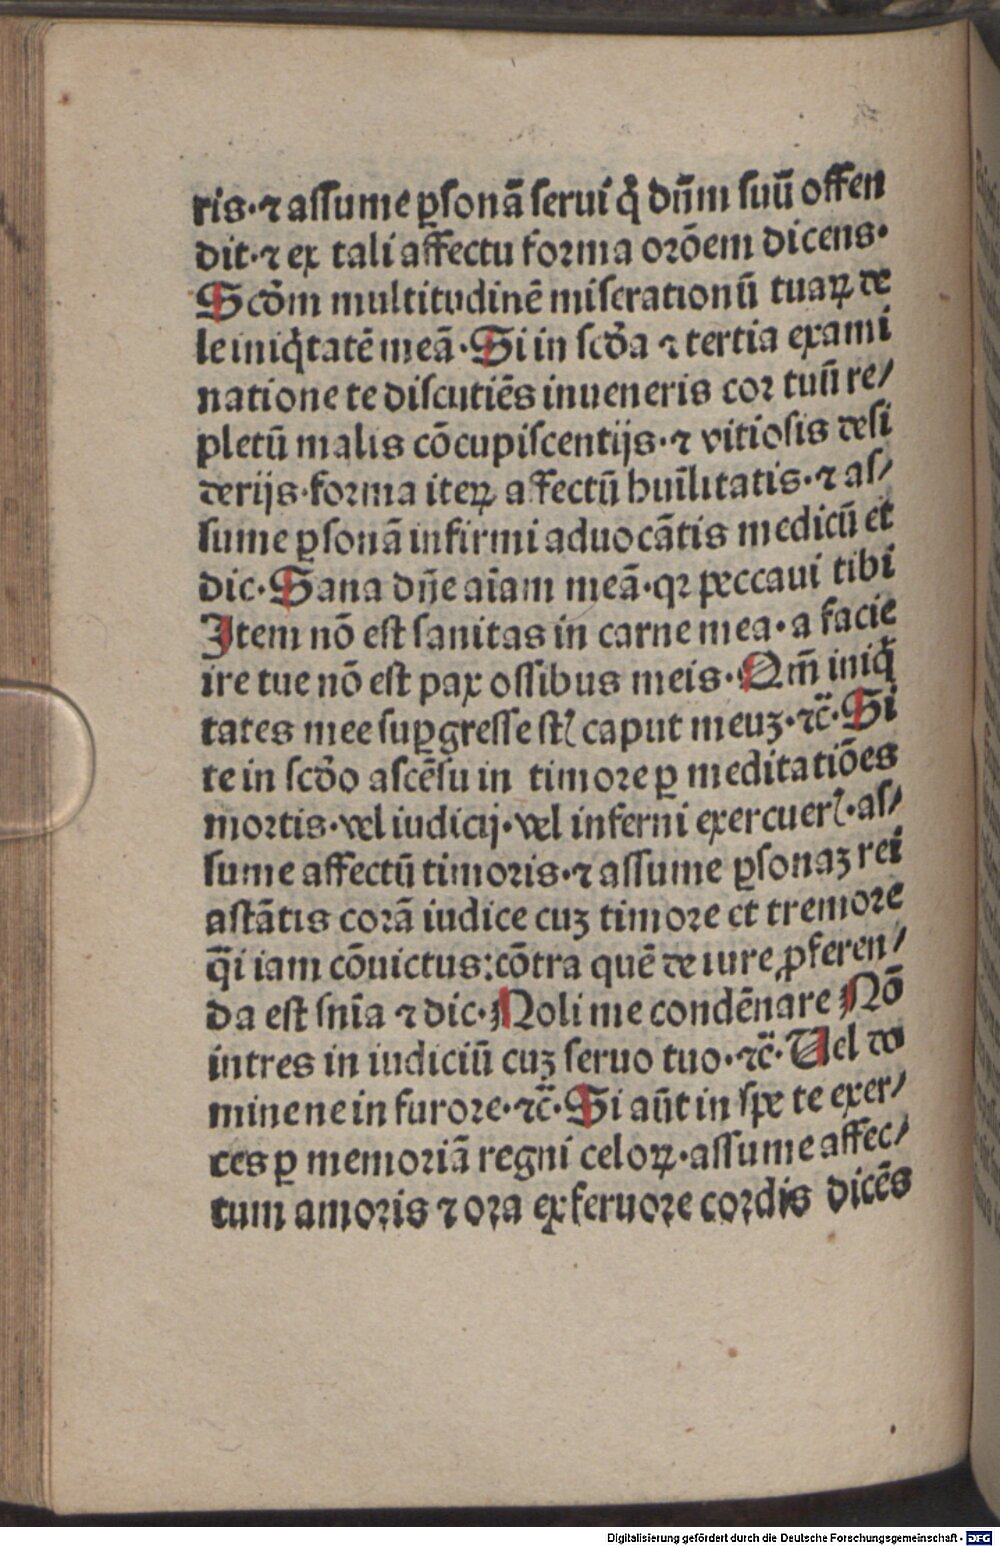 ris·⁊ assume ꝑsonā serui q̇ dn̄m suū offen
dit·⁊ ex tali affectu forma orōem dicens·
Scd̄m multitudinē miserationū tuaꝝ de
le iniq̇tatē meā·Si in scd̄a ⁊ tertia exami
natione te discutiēs inueneris cor tuū re/
pletū malis cōcupiscentijs·⁊ vitiosis desi
derijs·forma iteꝝ affectū huīlitatis·⁊ as/
sume ꝑsonā infirmi aduocātis medicū et
dic·Sana dn̄e aīam meā·qꝛ peccaui tibi
Item nō est sanitas in carne mea·a facie
ire tue nō est pax ossibus meis·Qm̄ iniq̇
tates mee suꝑgresse st̄ caput meuꝫ·⁊c̄·Si
te in scd̄o ascēsu in timore ꝑ meditatiōes
mortis·vel iudicij·vel inferni exercuer̄·as/
sume affectū timoris·⁊ assume ꝑsonaꝫ rei
astātis corā iudice cuꝫ timore et tremore
q̄i iam cōuictus:cōtra quē de iure ꝓferen/
da est sn̄ia ⁊ dic·Noli me condēnare Nō
intres in iudiciū cuꝫ seruo tuo·⁊c̄·Uel do
mine ne in furore·⁊c̄·Si aūt in spe te exer/
ces ꝑ memoriā regni celoꝝ·assume affec/
tum amoris ⁊ ora ex feruore cordis dicēs
Digitalisierung gefördert durch die Deutsche Forschungsgemeinschaft - DFG